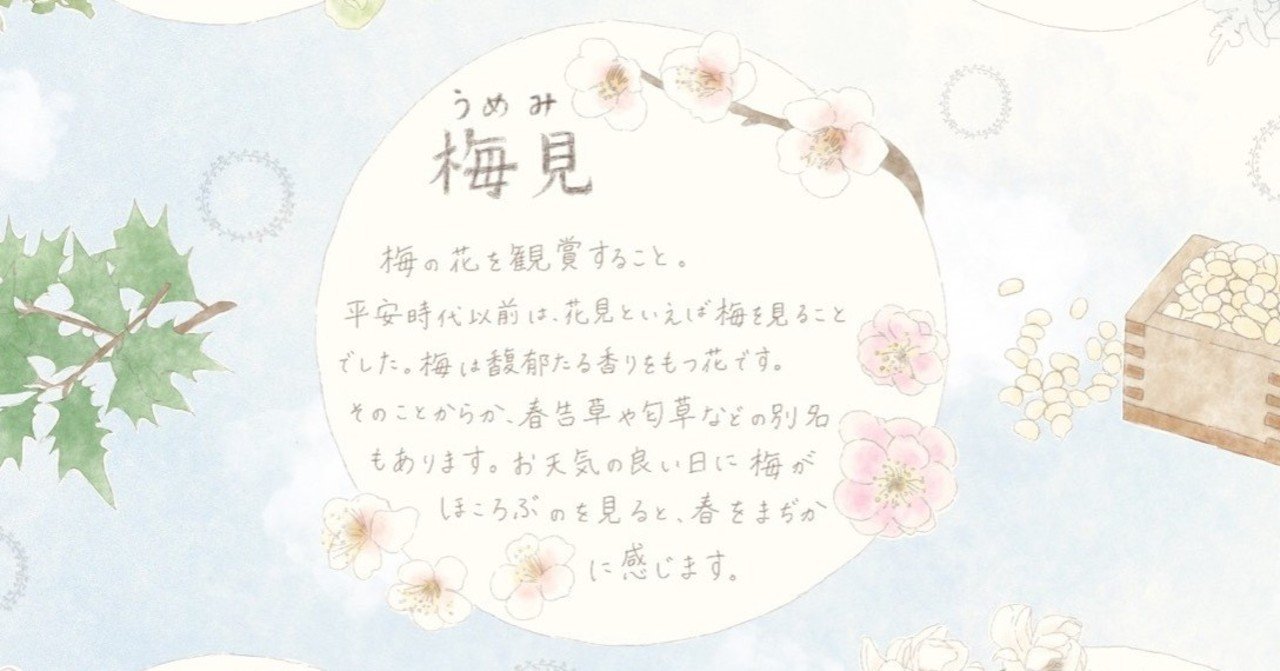 うめみ
梅見
梅の花を観賞すること。
平安時代以前は、花見といえば梅を見ること
でした。梅は馥郁たる香りをもつ花です。
そのことからか、春告草や匂草などの別名
もあります。お天気の良い日に梅が
ほころぶのを見ると、春をまぢか
に感じます。